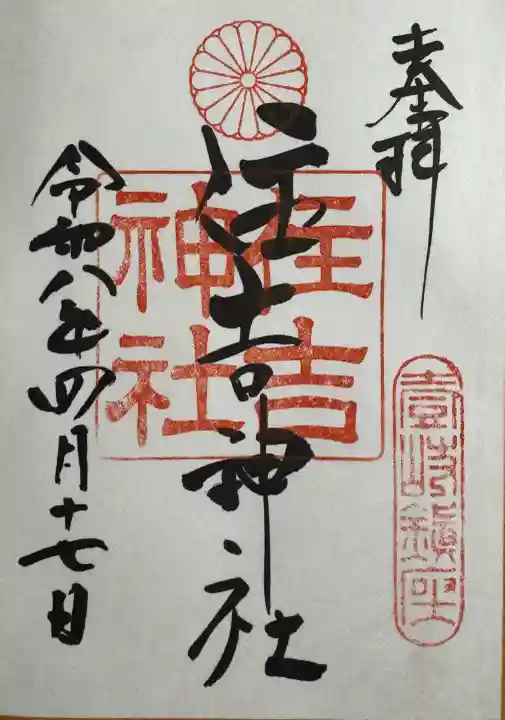 奉拝
壱岐鎮座
住吉神社
住吉
神社
令和八年四月十七日